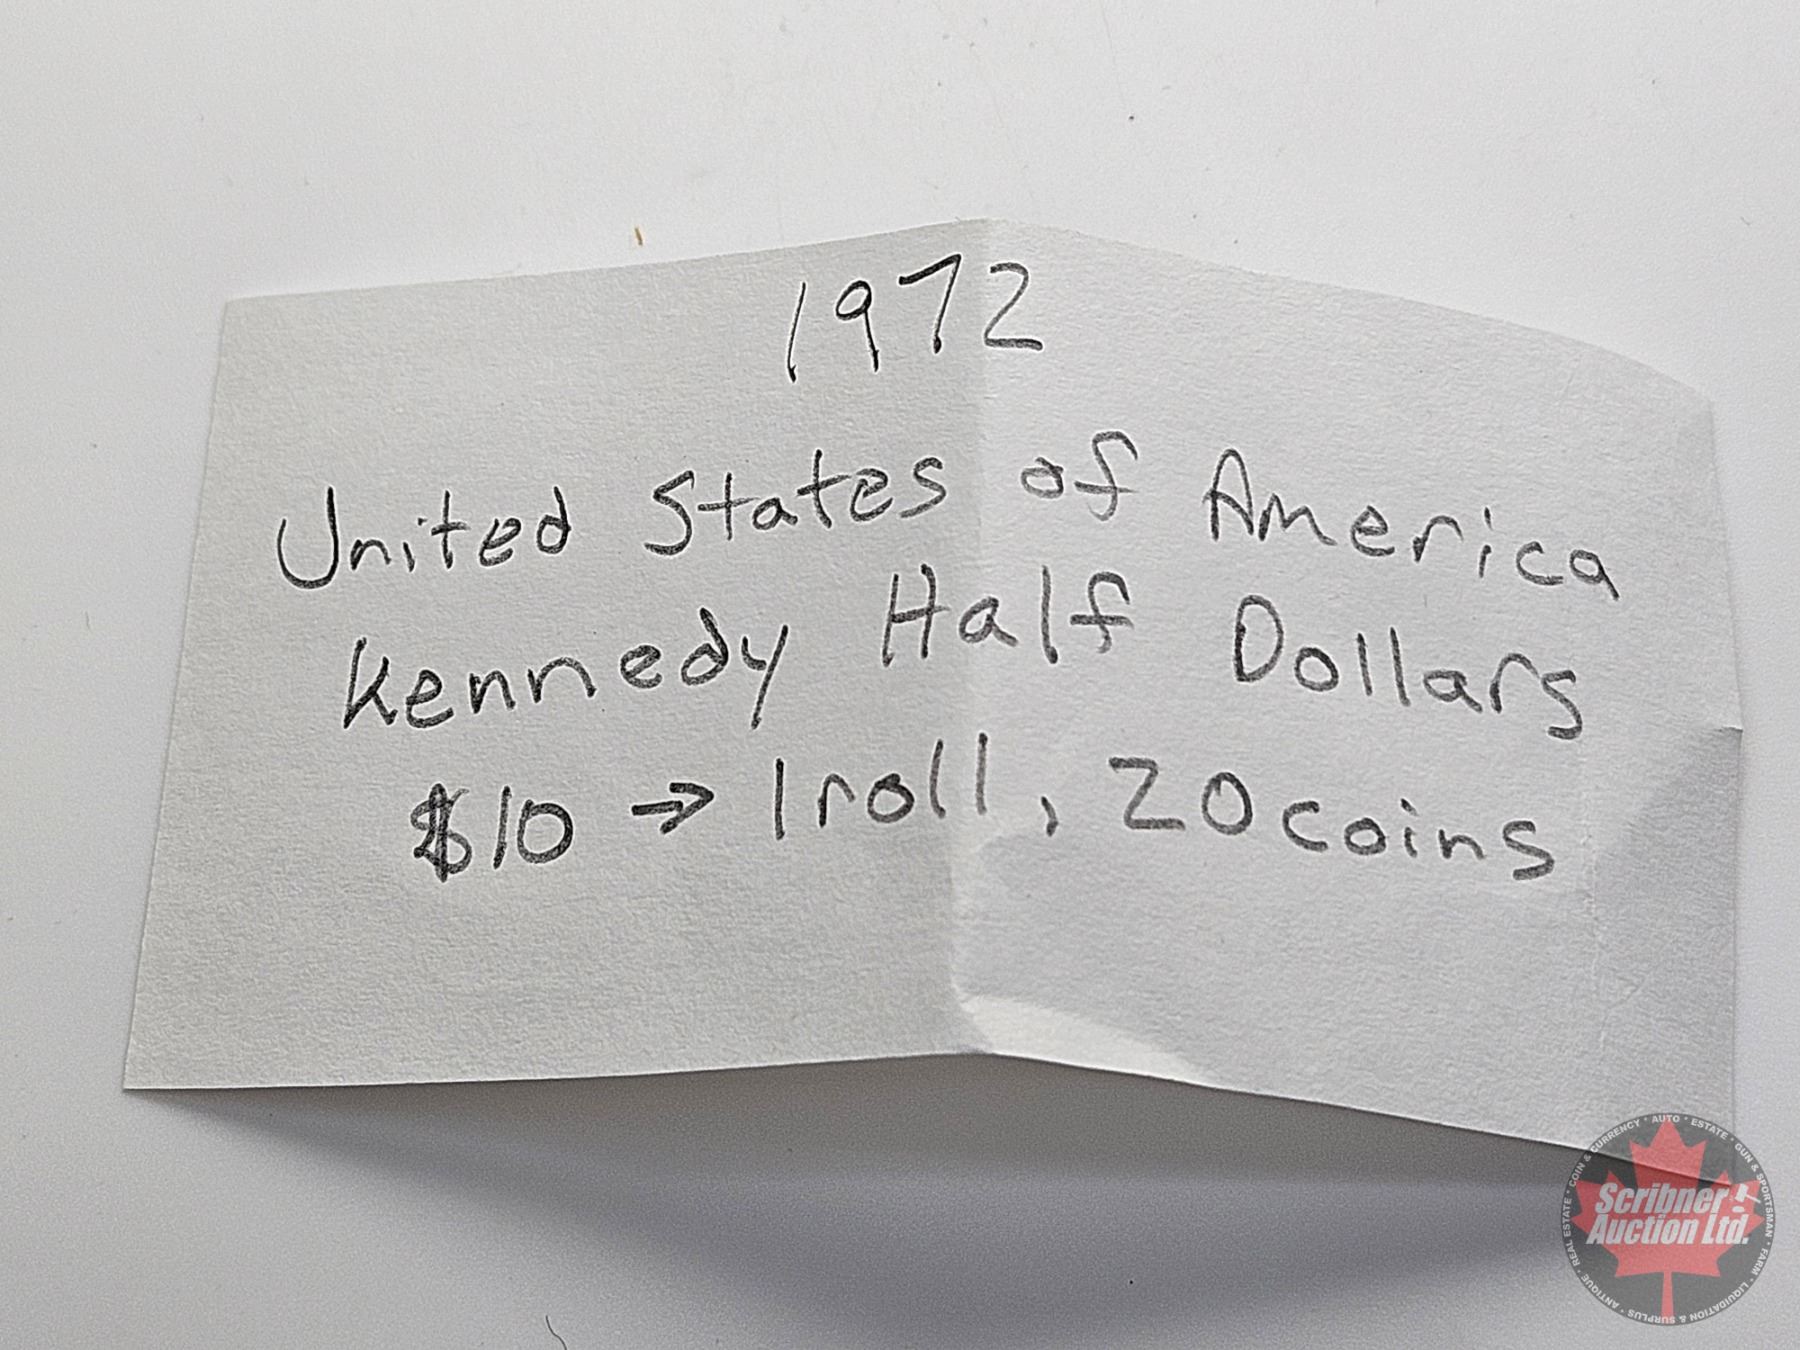 1972
United States of America
Kennedy Half Dollars
$10 → 1 roll, 20 coins
Scribner
Auction Ltd.
REAL ESTATE · COIN & CURRENCY · AUTO · ESTATE · GUN & SPORTSMAN · FARM · LIQUIDATION & SURPLUS · ANTIQUE ·